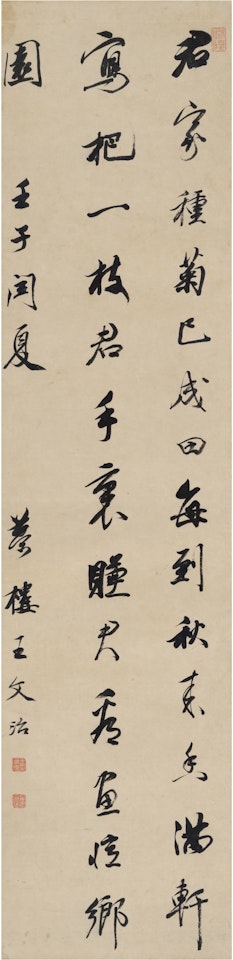 君家種菊已成田每到秋来香滿軒
寫把一枝君手裏賺君看画憶鄉
園 壬子閏夏 夢樓王文治